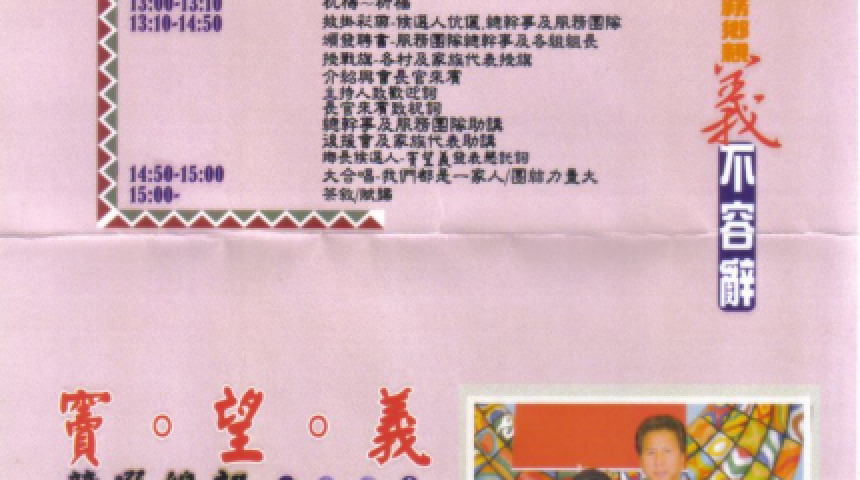 13:00-13:10 祝禱~祈福
13:10-14:50 披掛彩帶-候選人伉儷,總幹事及服務團隊
頒發聘書-服務團隊總幹事及各組組長
授戰旗-各村及家族代表授旗
介紹與會長官來賓
主持人致歡迎詞
長官來賓致祝詞
總幹事及服務團隊助講
後援會及家族代表助講
鄉長候選人-竇望義發表懇託詞
14:50-15:00 大合唱-我們都是一家人/團結力量大
15:00- 茶敘/賦歸
務鄉親
義不容辭
竇。望。義
競選總部